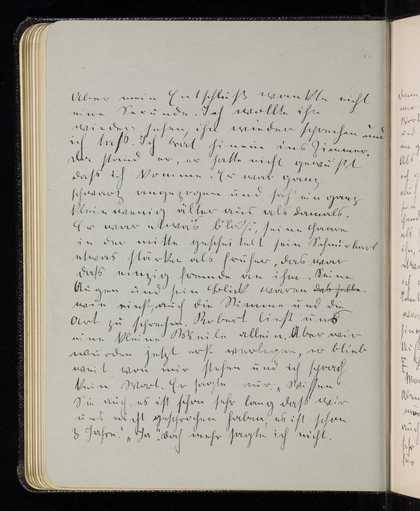 Aber mein Entschluß wankte nicht
eine Sekunde. Ich wollte ihn
wieder sehen, ihn wieder sprechen und
ich trat hinein ins Zimmer.
Da stand er, er hatte nicht gewußt
daß ich komme. Er war ganz
schwarz angezogen und sah ein ganz
klein wenig älter aus als damals.
Er war etwas blaß, seine Haare
in der mitte gescheitelt sein Schnurrbart
etwas stärker als früher, das war
das einzig fremde an ihm. Seine
Augen und sein Blick waren
nicht, auch die Stimme und die
Art zu sprechen. Robert ließ uns
eine kleine Weile allein. Aber wir
wurden jetzt erst verlegen, er blieb
weit von mir stehen und ich sprach
kein Wort. Er sagte nur, "Wissen
Sie auch, es ist schon sehr lang daß wir
uns nicht gesprochen haben, es ist schon
3 Jahre." "Ja" mehr sagte ich nicht.